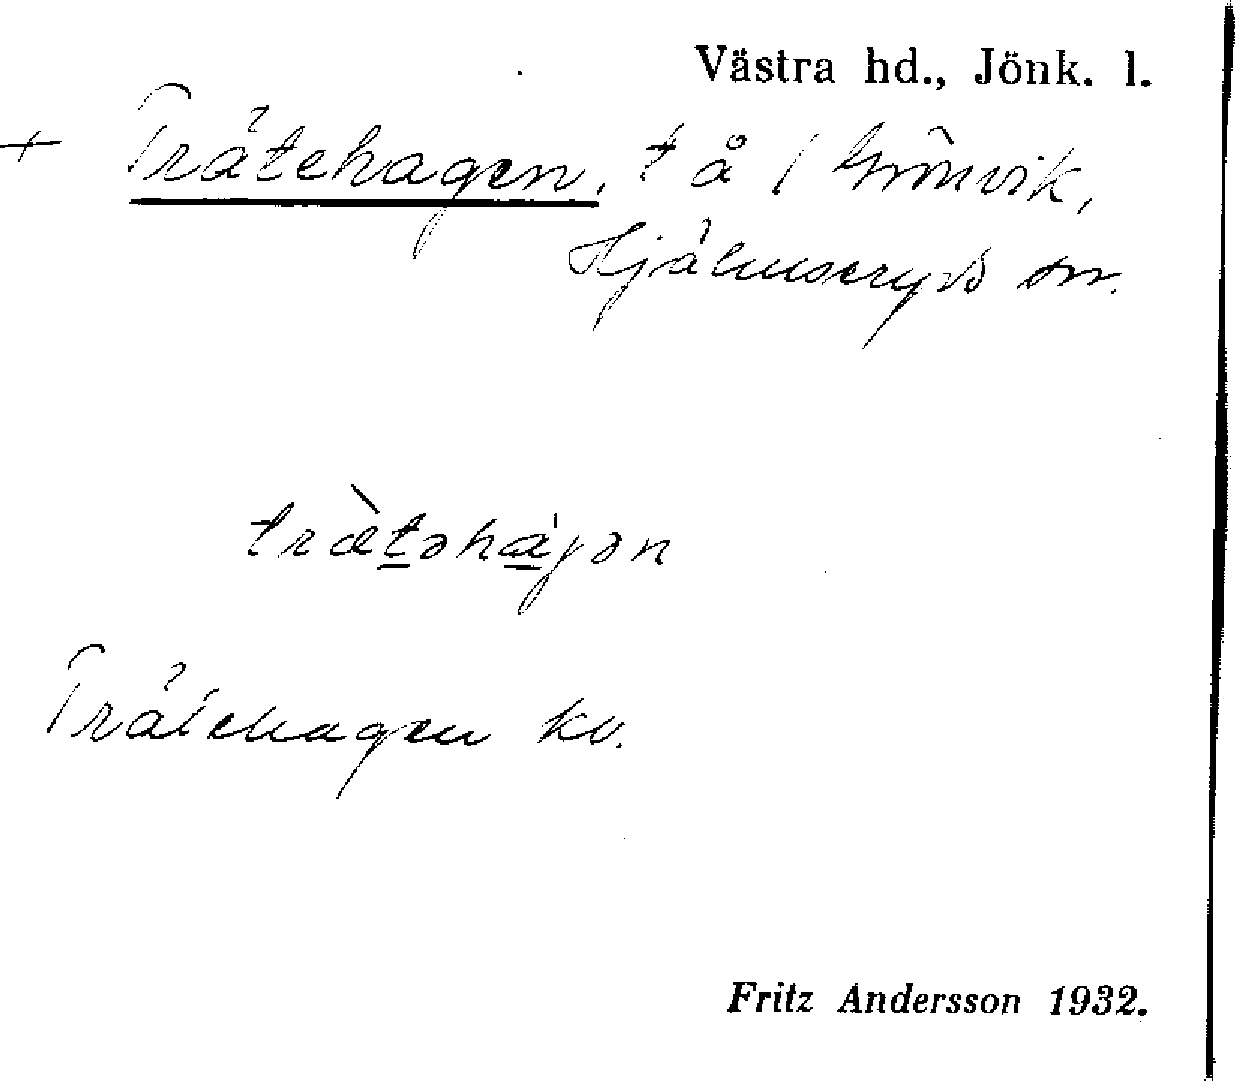 Västra hd., Jönk. l.
+ Trätehagen, t å / Grönvik,
Hjälmseryds sn.
træ̀təhàgən
Trätehagen kv.
Fritz Andersson 1932.